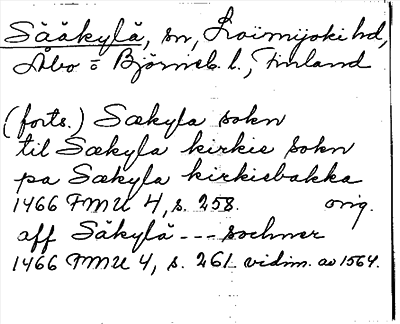 Sääkylä, sn, Loimijoki hd,
Åbo o Björneb. l., Finland
(forts.) Sækyla sokn
til Sækyla kirkie sokn
pa Sækyla kirkiebakka
1466 FMU 4, s. 258. orig.
aff Säkylä --- sochner
1466 FMU 4, s. 261 vidim. av 1564.